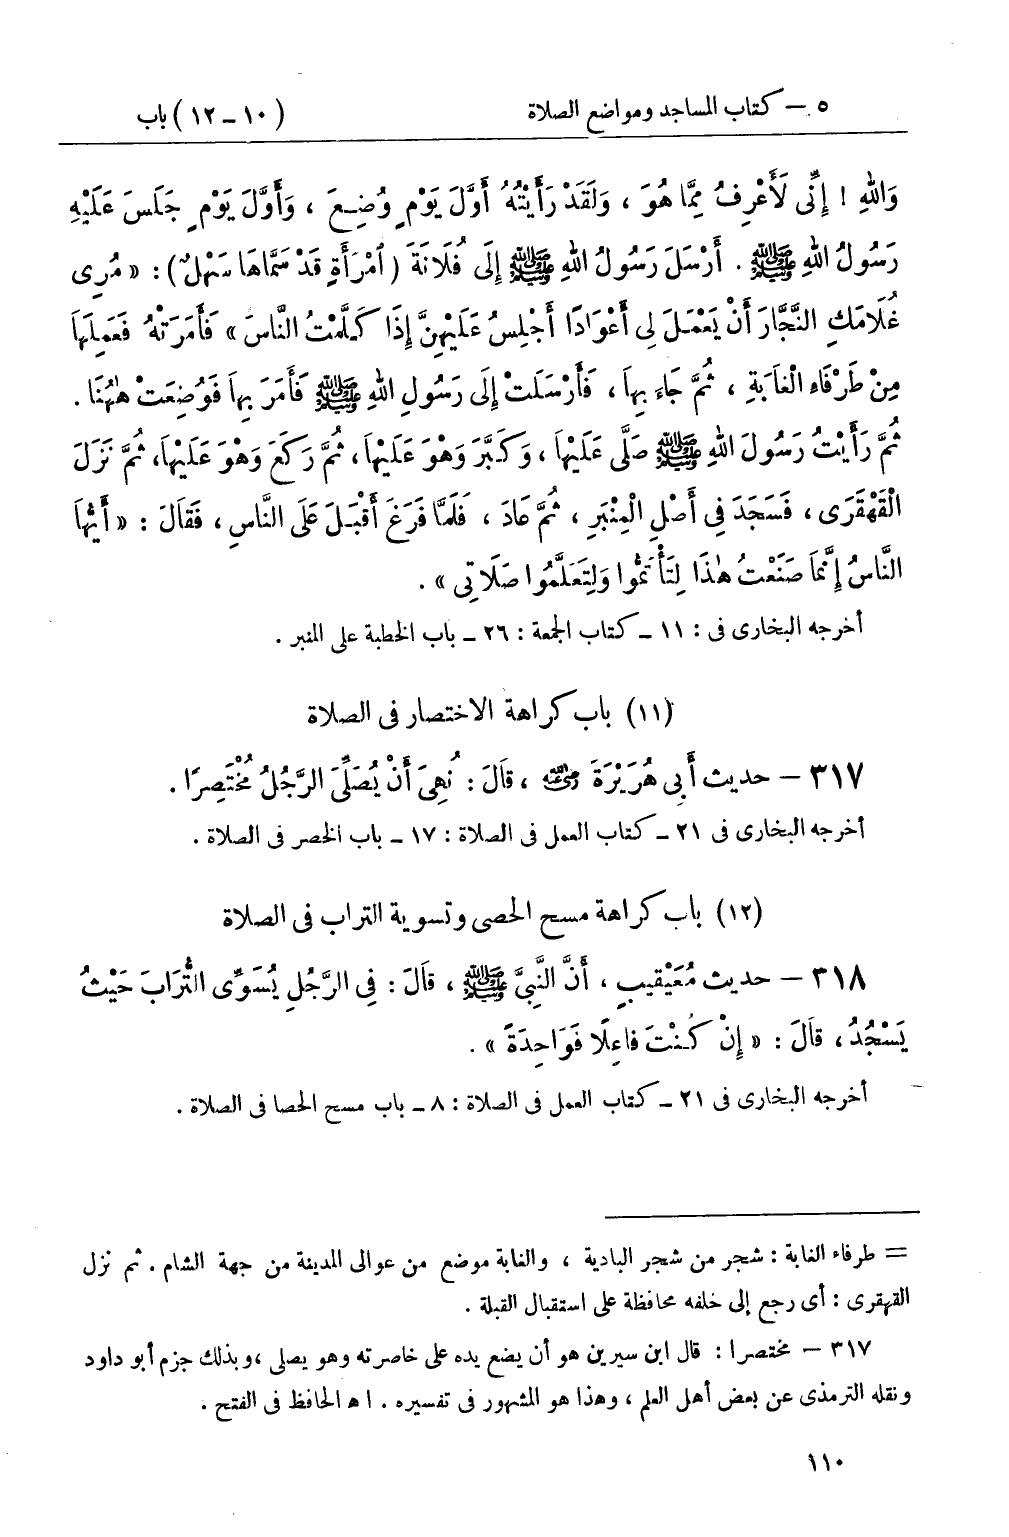 ٥ – كتاب المساجد ومواضع الصلاة (١٠ – ١٢) باب
وَاللهِ ! إِنِّى لَأَعْرِفُ مِمَّا هُوَ ، وَلَقَدْ رَأَيْتُهُ أَوَّلَ يَوْمٍ وُضِعَ ، وَأَوَّلَ يَوْمٍ جَلَسَ عَلَيْهِ
رَسُولُ اللهِ ﷺ . أَرْسَلَ رَسُولُ اللهِ ﷺ إِلَى فُلَانَةَ ( امْرَأَةٍ قَدْ سَمَّاهَا سَهْلٌ ) : « مُرِى
غُلَامَكِ النَّجَّارَ أَنْ يَعْمَلَ لِى أَعْوَادًا أَجْلِسُ عَلَيْهِنَّ إِذَا كَلَّمْتُ النَّاسَ » فَأَمَرَتْهُ فَعَمِلَهَا
مِنْ طَرْفَاءِ الْغَابَةِ ، ثُمَّ جَاءَ بِهَا ، فَأَرْسَلَتْ إِلَى رَسُولِ اللهِ ﷺ فَأَمَرَ بِهَا فَوُضِعَتْ هٰهُنَا .
ثُمَّ رَأَيْتُ رَسُولَ اللهِ ﷺ صَلَّى عَلَيْهَا ، وَكَبَّرَ وَهْوَ عَلَيْهَا ، ثُمَّ رَكَعَ وَهْوَ عَلَيْهَا ، ثُمَّ نَزَلَ
الْقَهْقَرَى ، فَسَجَدَ فِى أَصْلِ الْمِنْبَرِ ، ثُمَّ عَادَ ، فَلَمَّا فَرَغَ أَقْبَلَ عَلَى النَّاسِ ، فَقَالَ : « أَيُّهَا
النَّاسُ إِنَّمَا صَنَعْتُ هٰذَا لِتَأْتَمُّوا وَلِتَعَلَّمُوا صَلَاتِى » .
أخرجه البخارى فى : ١١ – كتاب الجمعة : ٢٦ – باب الخطبة على المنبر .
(١١) باب كراهة الاختصار فى الصلاة
٣١٧ – حديث أَبِى هُرَيْرَةَ رضي الله عنه ، قَالَ : نُهِىَ أَنْ يُصَلِّىَ الرَّجُلُ مُخْتَصِرًا .
أخرجه البخارى فى ٢١ – كتاب العمل فى الصلاة : ١٧ – باب الخصر فى الصلاة .
(١٢) باب كراهة مسح الحصى وتسوية التراب فى الصلاة
٣١٨ – حديث مُعَيْقِيبٍ ، أَنَّ النَّبِىَّ ﷺ ، قَالَ : فِى الرَّجُلِ يُسَوِّى التُّرَابَ حَيْثُ
يَسْجُدُ ، قَالَ : « إِنْ كُنْتَ فَاعِلًا فَوَاحِدَةً » .
أخرجه البخارى فى ٢١ – كتاب العمل فى الصلاة : ٨ – باب مسح الحصا فى الصلاة .
= طرفاء الغابة : شجر من شجر البادية ، والغابة موضع من عوالى المدينة من جهة الشام . ثم نزل
القهقرى : أى رجع إلى خلفه محافظة على استقبال القبلة .
٣١٧ – مختصرا : قال ابن سيرين هو أن يضع يده على خاصرته وهو يصلى ، وبذلك جزم أبو داود
ونقله الترمذى عن بعض أهل العلم ، وهذا هو المشهور فى تفسيره . ا هـ الحافظ فى الفتح .
١١٠